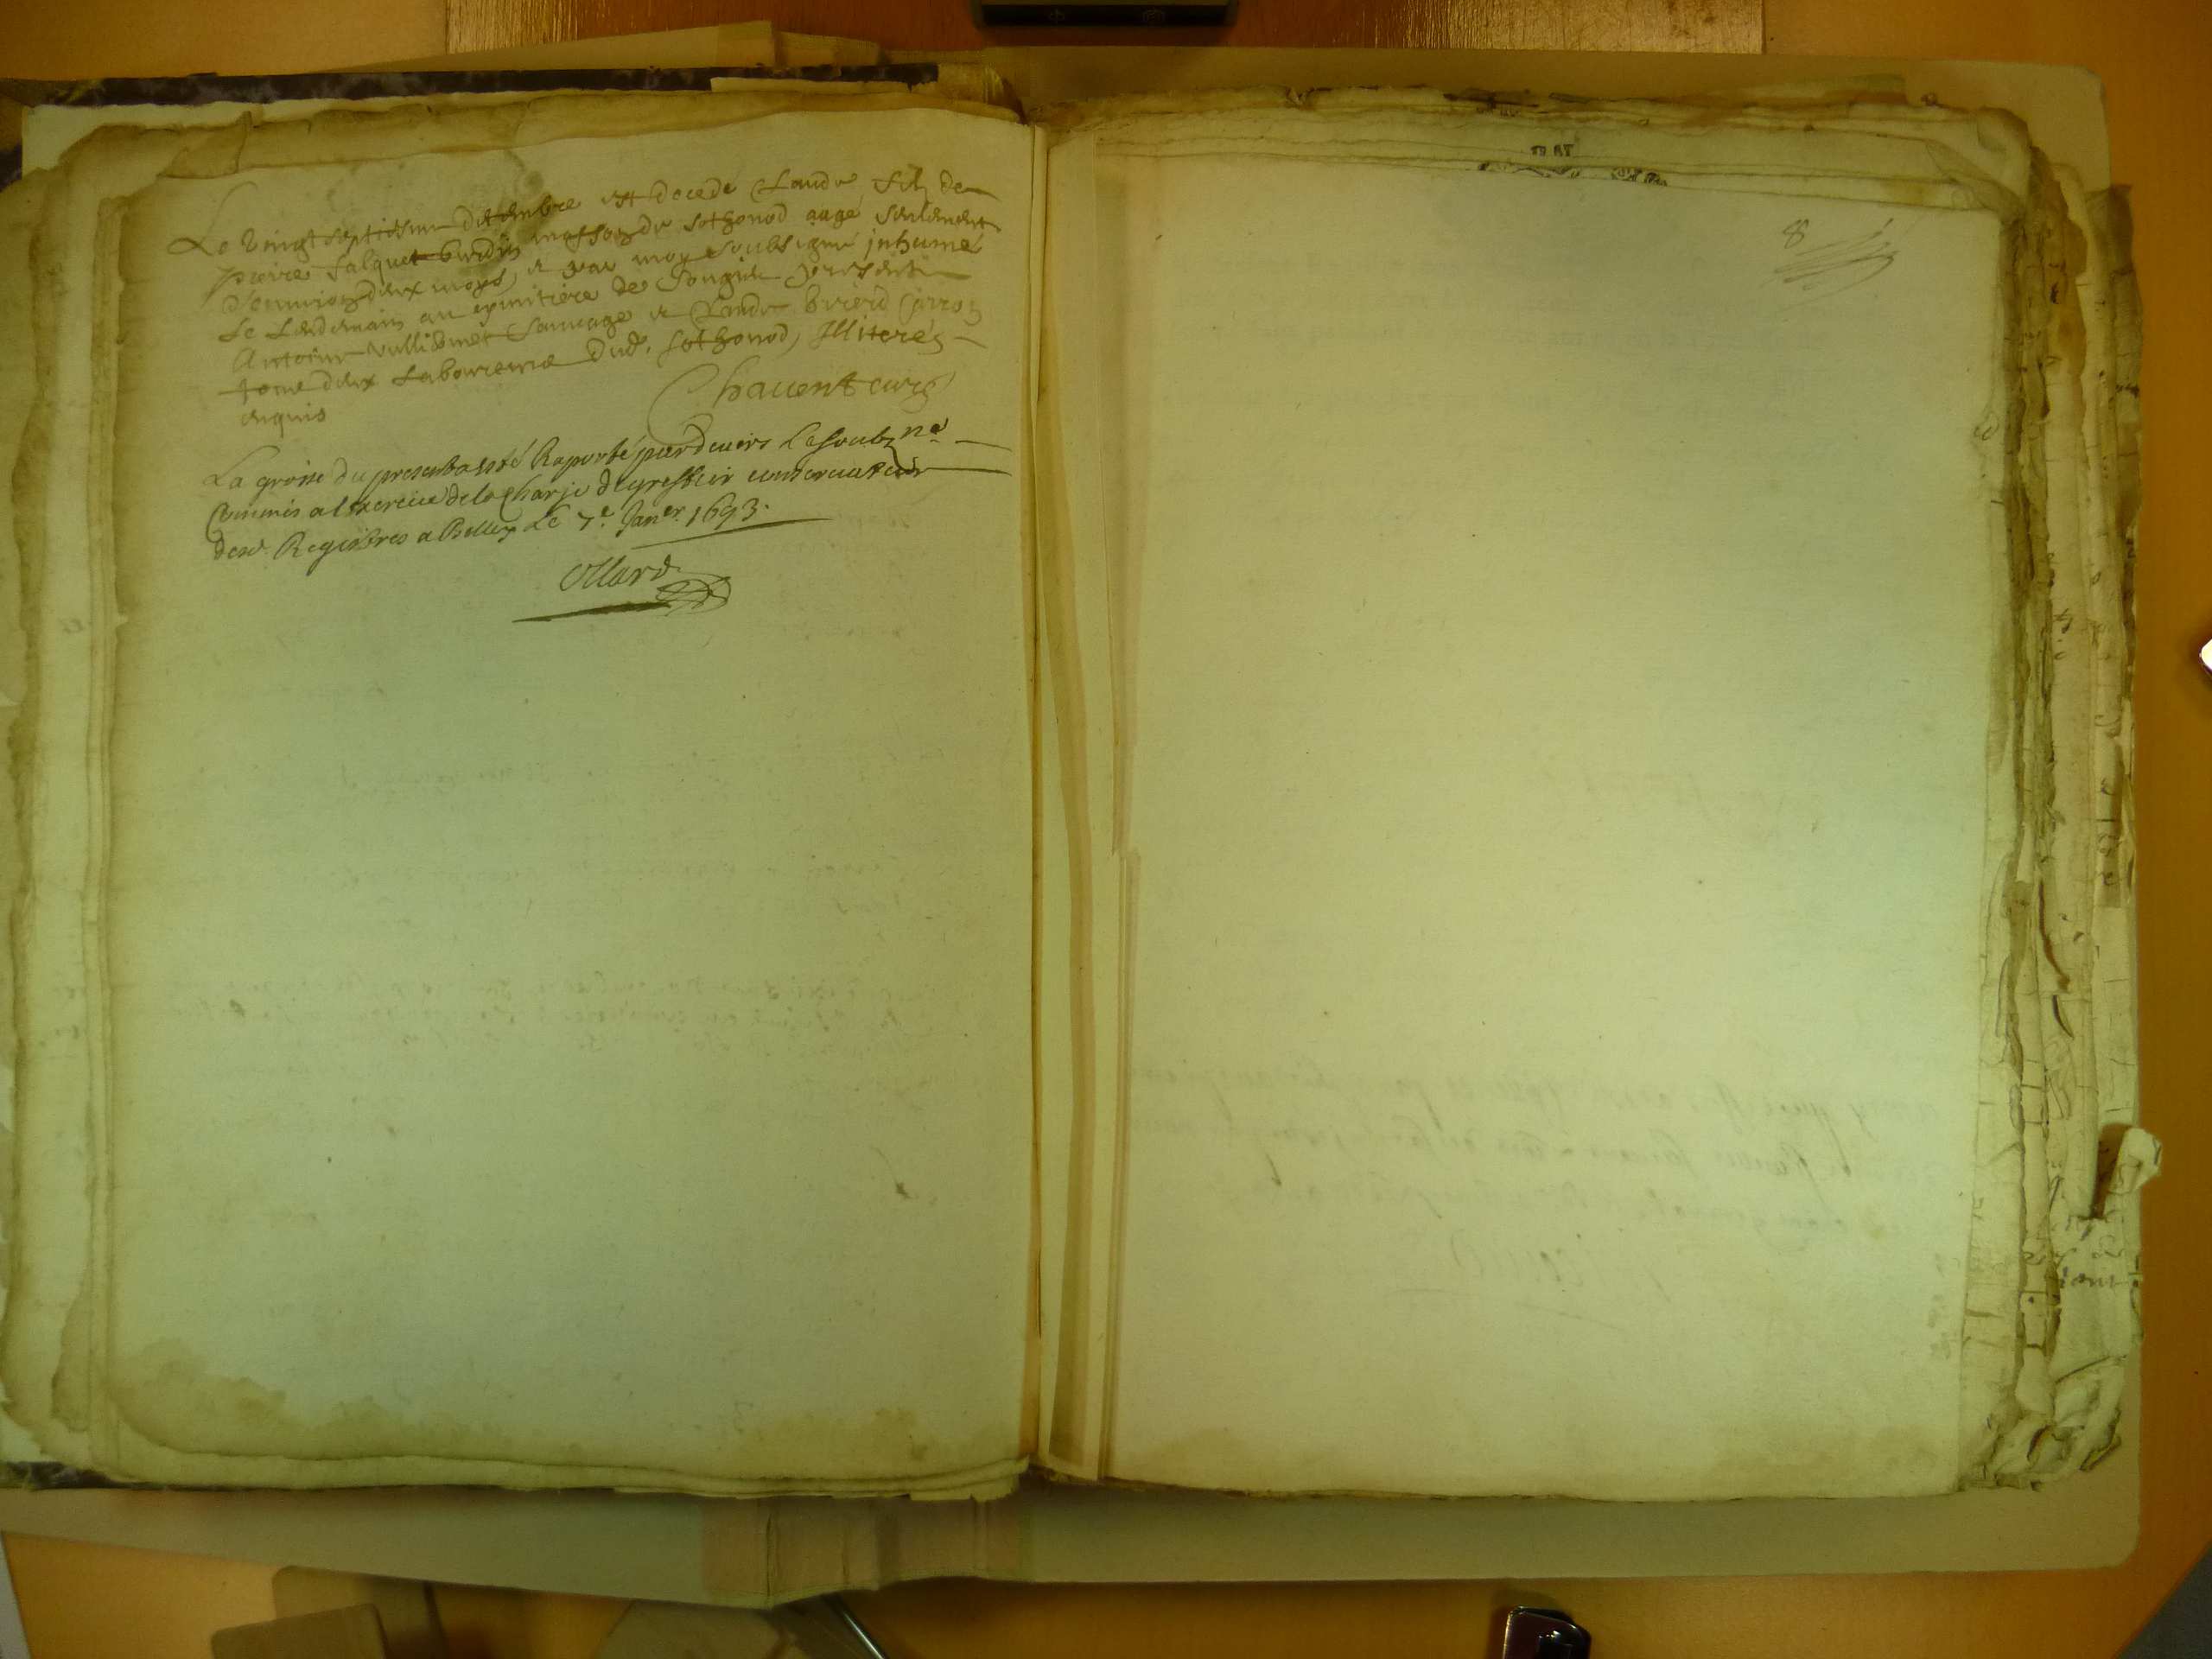 Le vingt septiesme decembre est decede Claude filz de
pierre falquet burdin masson de sothonod aagé seulement
d'environ deux moys, et par moy soubsigné inhumé
le lendemain au cymitiere de Songieu presents
Antoine vulliomet sauvage et Claude
tous deux laboureurs dud. sothonod, illiterés
enquis
Chavent curé
La grosse du present a esté Raporté pardevers Le soubzné
Commis a l'exercice de la Charje de greffier conservateur
desd. Registres a Belley Le 7e. Janer. 1693.
Ollard
8